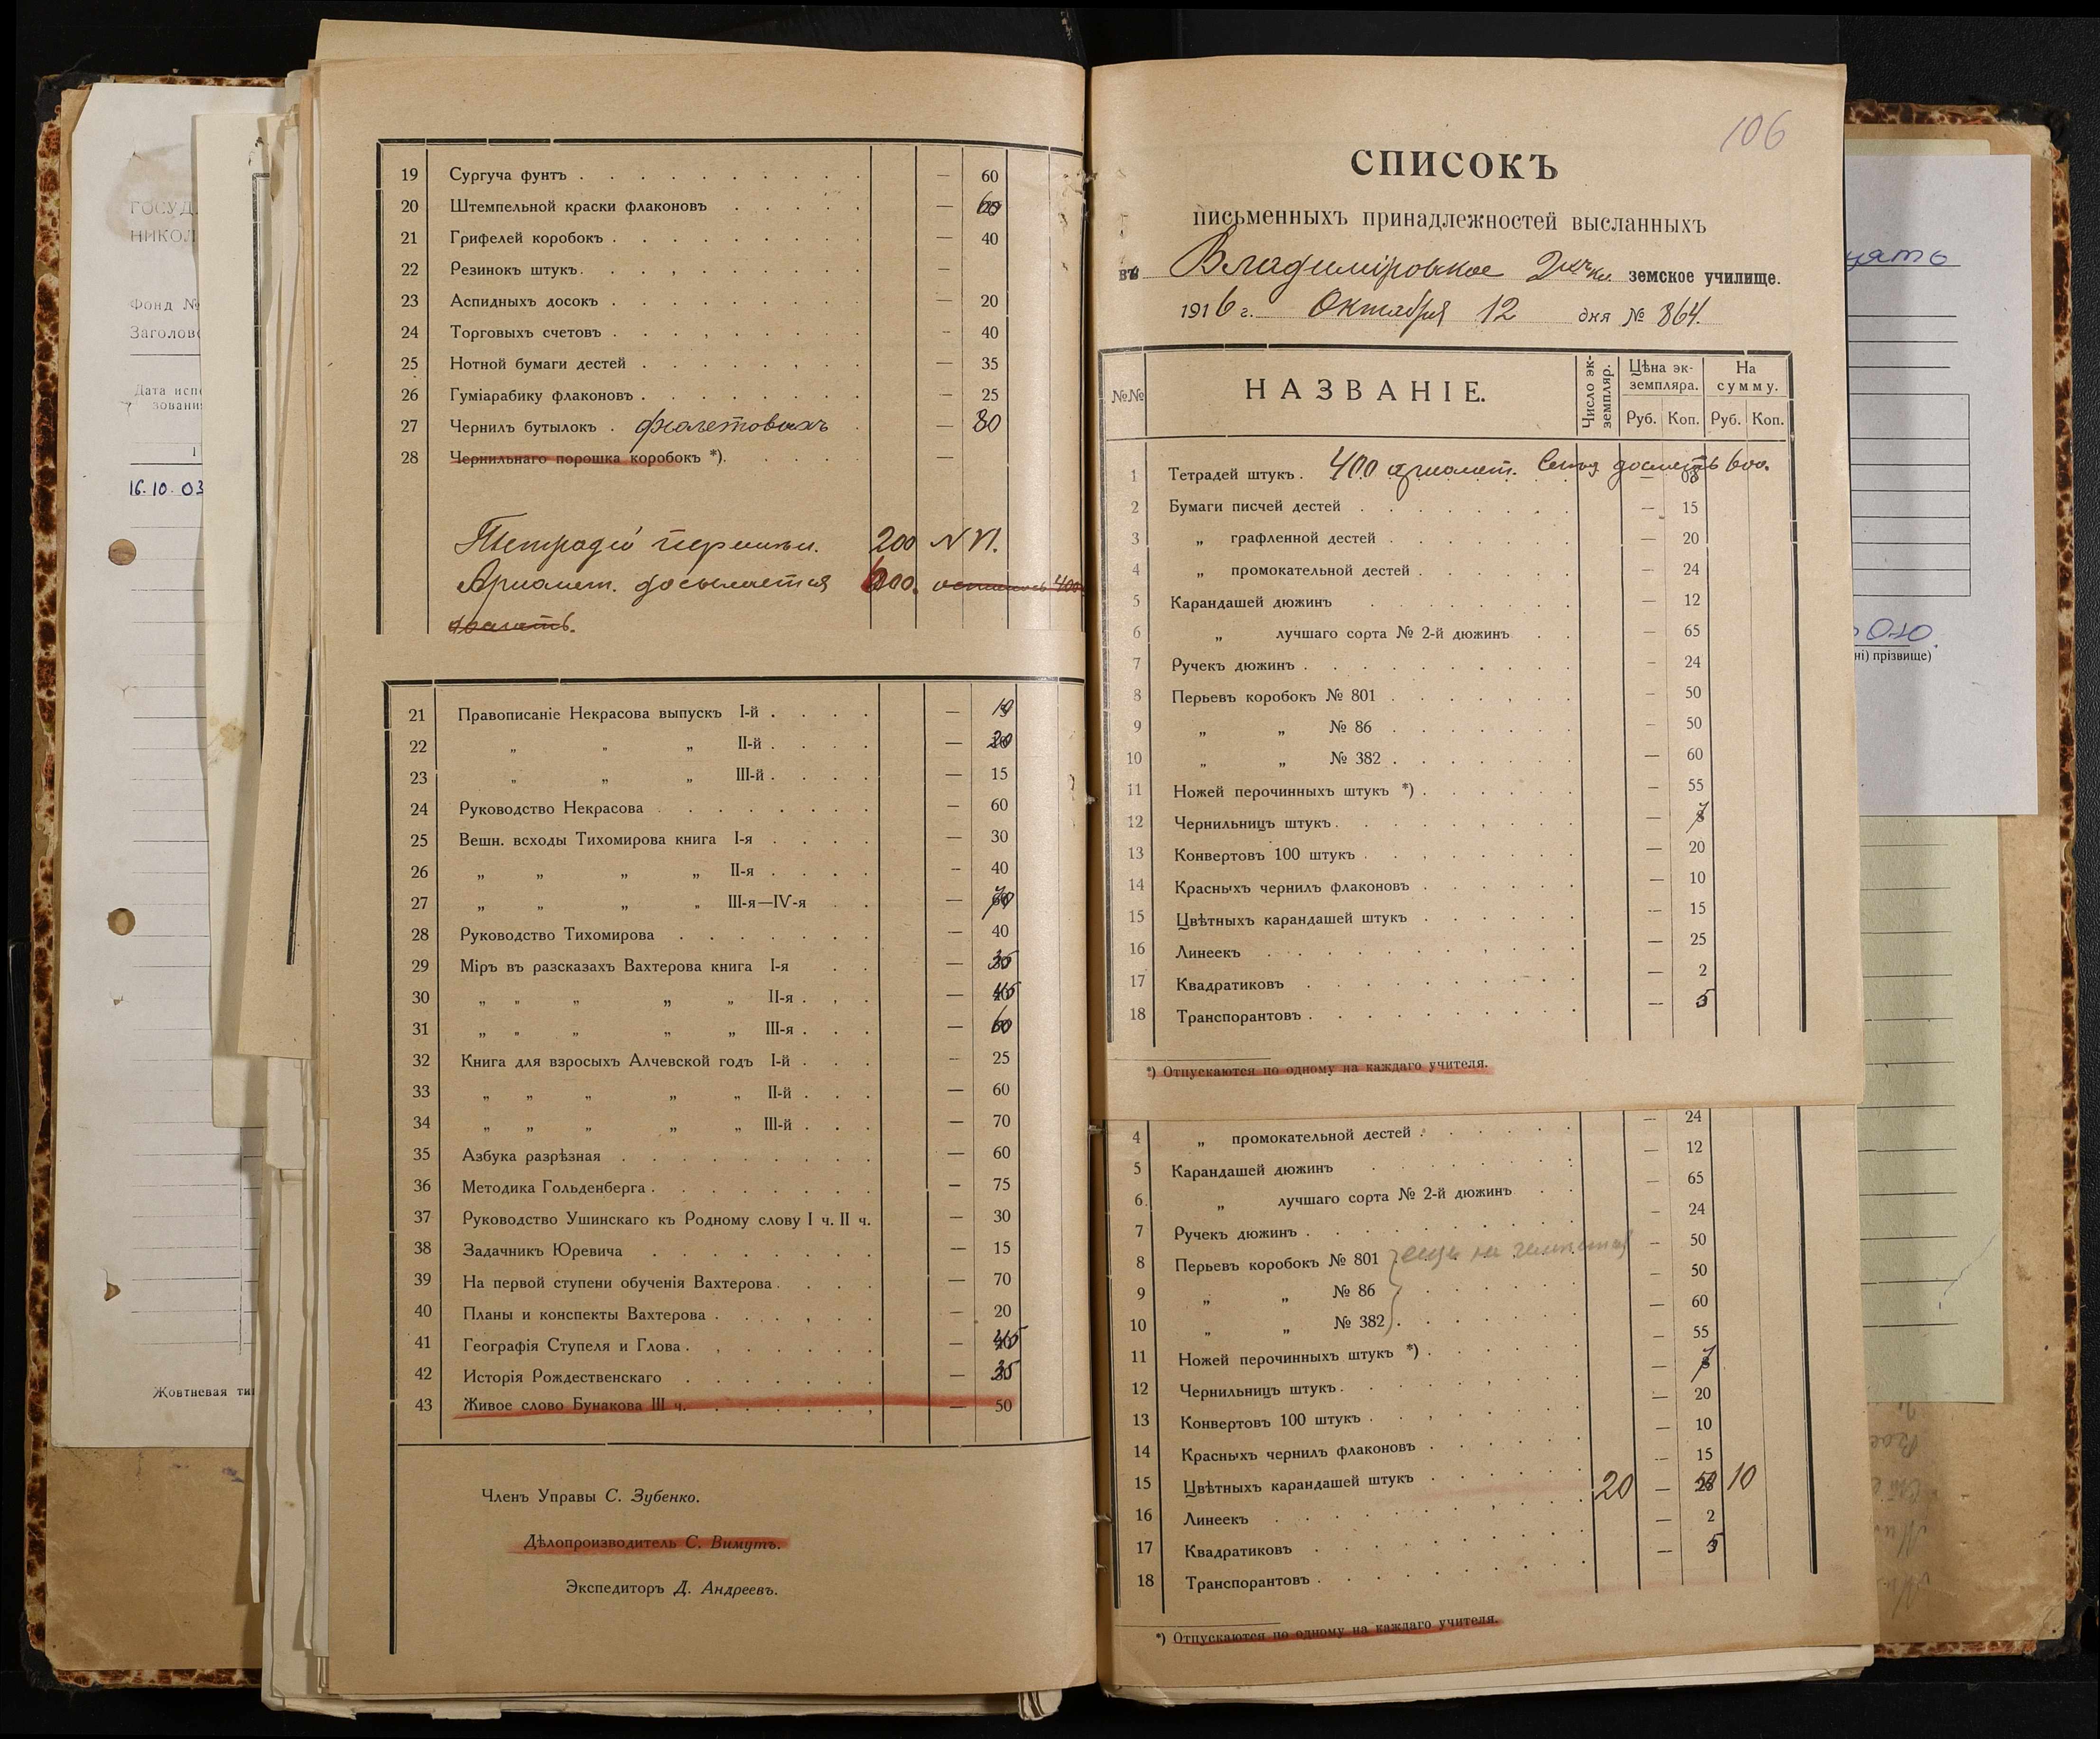 19 Сургуча фунтъ — 60
20 Штемпельной краски флаконовъ —
21 Грифелей коробокъ — 40
22 Резинокъ штукъ —
23 Аспидныхъ досокъ — 20
24 Торговыхъ счетовъ — 40
25 Нотной бумаги дестей — 35
26 Гуміарабику флаконовъ — 25
27 Чернилъ бутылокъ фіолетовыхъ — 80
28 Чернильнаго порошка коробокъ *) —
Тетрадей 200 N VI.
Арифмет. досылается 600. осталось 400
дослать.
21 Правописаніе Некрасова выпускъ I-й —
22 „ „ „ II-й — 20
23 „ „ „ III-й — 15
24 Руководство Некрасова — 60
25 Вешн. всходы Тихомирова книга I-я — 30
26 „ „ „ „ II-я — 40
27 „ „ „ „ III-я—IV-я — 70
28 Руководство Тихомирова — 40
29 Міръ въ разсказахъ Вахтерова книга I-я — 35
30 „ „ „ „ „ II-я — 45
31 „ „ „ „ „ III-я — 60
32 Книга для взросыхъ Алчевской годъ I-й — 25
33 „ „ „ „ „ II-й — 60
34 „ „ „ „ „ III-й — 70
35 Азбука разрѣзная — 60
36 Методика Гольденберга — 75
37 Руководство Ушинскаго къ Родному слову I ч. II ч. — 30
38 Задачникъ Юревича — 15
39 На первой ступени обученія Вахтерова — 70
40 Планы и конспекты Вахтерова — 20
41 Географія Ступеля и Глова — 45
42 Исторія Рождественскаго — 35
43 Живое слово Бунакова III ч. — 50
Членъ Управы С. Зубенко.
Дѣлопроизводитель С. Вимутъ.
Экспедиторъ Д. Андреевъ.
106
СПИСОКЪ
письменныхъ принадлежностей высланныхъ
въ Владиміровское 2 земское училище.
1916 г. Октября 12 дня № 864.
№№ НАЗВАНІЕ. Число экземпляр. Цѣна экземпляра. На сумму.
Руб. Коп. Руб. Коп.
1 Тетрадей штукъ 400 арифмет. дослать 600. — 03
2 Бумаги писчей дестей — 15
3 „ графленной дестей — 20
4 „ промокательной дестей — 24
5 Карандашей дюжинъ — 12
6 „ лучшаго сорта № 2-й дюжинъ — 65
7 Ручекъ дюжинъ — 24
8 Перьевъ коробокъ № 801 — 50
9 „ „ № 86 — 50
10 „ „ № 382 — 60
11 Ножей перочинныхъ штукъ *) — 55
12 Чернильницъ штукъ — 7
13 Конвертовъ 100 штукъ — 20
14 Красныхъ чернилъ флаконовъ — 10
15 Цвѣтныхъ карандашей штукъ — 15
16 Линеекъ — 25
17 Квадратиковъ — 2
18 Транспорантовъ — 5
*) Отпускаются по одному на каждаго учителя.
24
4 „ промокательной дестей — 12
5 Карандашей дюжинъ — 65
6. „ лучшаго сорта № 2-й дюжинъ — 24
7 Ручекъ дюжинъ — 50
8 Перьевъ коробокъ № 801 еще не — 50
9 „ „ № 86 — 60
10 „ „ № 382 — 55
11 Ножей перочинныхъ штукъ *) — 7
12 Чернильницъ штукъ — 20
13 Конвертовъ 100 штукъ — 10
14 Красныхъ чернилъ флаконовъ — 15
15 Цвѣтныхъ карандашей штукъ 20 — 50 10
16 Линеекъ — 2
17 Квадратиковъ — 5
18 Транспорантовъ
*) Отпускаются по одному на каждаго учителя.
ГОСУД
НИКОЛ
Фонд №
Заголов
Дата исп
зовани
16.10.03
Жовтневая ти
ні) прізвище)